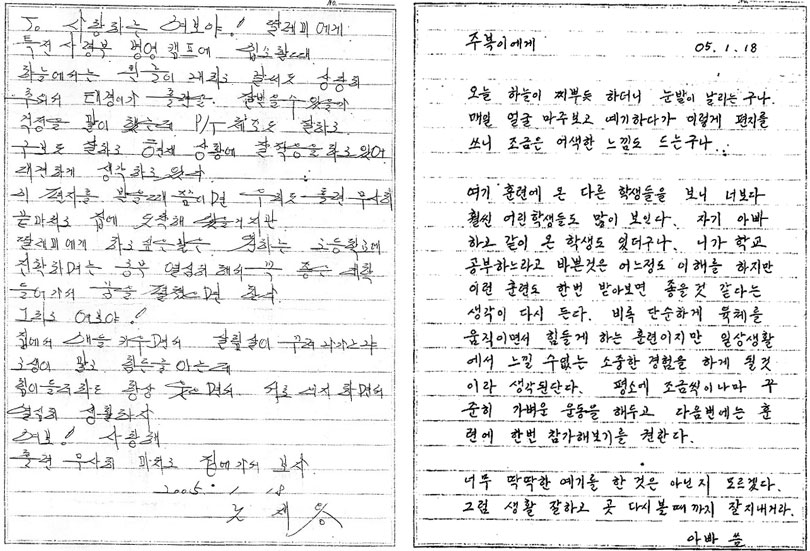 No.
To 사랑하는 여보야! 딸래미에게
특전사령부 병영 캠프에 입소할때
하늘에서는 흰눈이 내리고 날씨도 상당히
추워서 태경이가 훈련을 받을수 있을까
걱정을 많이 했는데 P/T 체조도 잘하고
구보도 잘하고 현재 상황에 잘 적응을 하고 있어
대견하게 생각하고 있다.
이 편지를 받을때 쯤이면 우리도 훈련 무사히
끝마치고 집에 도착해 있을거지만
딸래미에게 하고 싶은 말은 원하는 고등학교에
진학하면은 공부 열심히 해서 꼭 좋은 대학
들어가서 꿈을 펼쳤으면 한다
그리고 여보야!
집에서 애들 키우면서 알뜰살이 꾸려 나가느라
고생이 많고 힘든줄 아는데
힘이들더라도 항상 웃으면서 서로 의지 하면서
열심히 생활하자
여보! 사랑해
훈련 무사히 마치고 집에가서 보자.
2005. 1. 18
No.
주북이에게 05. 1. 18
오늘 하늘이 찌뿌듯 하더니 눈발이 날리는 구나.
매일 얼굴 마주보고 얘기하다가 이렇게 편지를
쓰니 조금은 어색한 느낌도 드는구나.
여기 훈련에 온 다른 학생들을 보니 너보다
훨씬 어린학생들도 많이 보인다. 자기 아빠
하고 같이 온 학생도 있더구나. 니가 학교
공부하느라고 바쁜것은 어느정도 이해를 하지만
이런 훈련도 한번 받아보면 좋을것 같다는
생각이 다시 든다. 비록 단순하게 육체를
움직이면서 힘들게 하는 훈련이지만 일상생활
에서 느낄 수없는 소중한 경험을 하게 될것
이라 생각된단다. 평소에 조금씩이나마 꾸
준히 가벼운 운동을 해두고 다음번에는 훈
련에 한번 참가해보기를 권한다.
너무 딱딱한 얘기를 한 것은 아닌지 모르겠다.
그럼 생활 잘하고 곳 다시볼때까지 잘지내거라.
아빠 씀